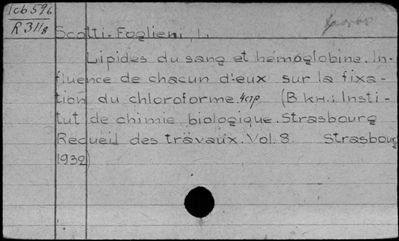 Icb59б
R311/8
Scotti-Foglieni, L.
Lipides du sang et hémoglobine. In-
fluence de chacun d'eux sur la fixa-
tion du chloroforme. 4стр (В кн.: Insti-
tut de chimie biologique. Strasbourg
Recueil des travaux. Vol. 8. Strasbourg
1932)